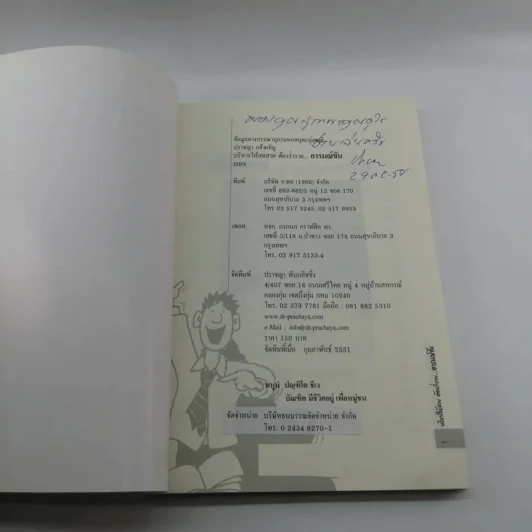 ข้อมูลทางบรรณานุกรมของหอสมุดแห่งชาติ
ปราชญา กล้าผจัญ
บริหารให้สดสวย ต้องร่ำรวย... อารมณ์ขัน
พิมพ์ บริษัท ก.พล (1996) จำกัด
เลขที่ 862-862/2 หมู่ 12 ซอย 170
ถนนสุขาภิบาล 3 กรุงเทพฯ
โทร 02 517 5245, 02 517 9953
เพลท หจก. กรกนก กราฟฟิค จก.
เลขที่ 3/118 ม.บัวขาว ซอย 174 ถนนสุขาภิบาล 3
กรุงเทพฯ
โทร. 02 917 5133-4
จัดพิมพ์ ปราชญา พับบลิชชิ่ง
4/407 ซอย 16 ถนนเสรีไทย หมู่ 4 หมู่บ้านสหกรณ์
คลองกุ่ม เขตบึงกุ่ม กทม 10240
โทร. 02 379 7761 มือถือ : 081 682 5310
www.dr-prachaya.com
e-Mail : info@dr-prachaya.com
ราคา 150 บาท
จัดพิมพ์เมื่อ กุมภาพันธ์ 2551
พาหุมํ ปณฺฑิโต ชีเว
บัณฑิต มีชีวิตอยู่ เพื่อหมู่ชน
จัดจำหน่าย บริษัทธนบรรณจัดจำหน่าย จำกัด
โทร. 0 2434 8270-1